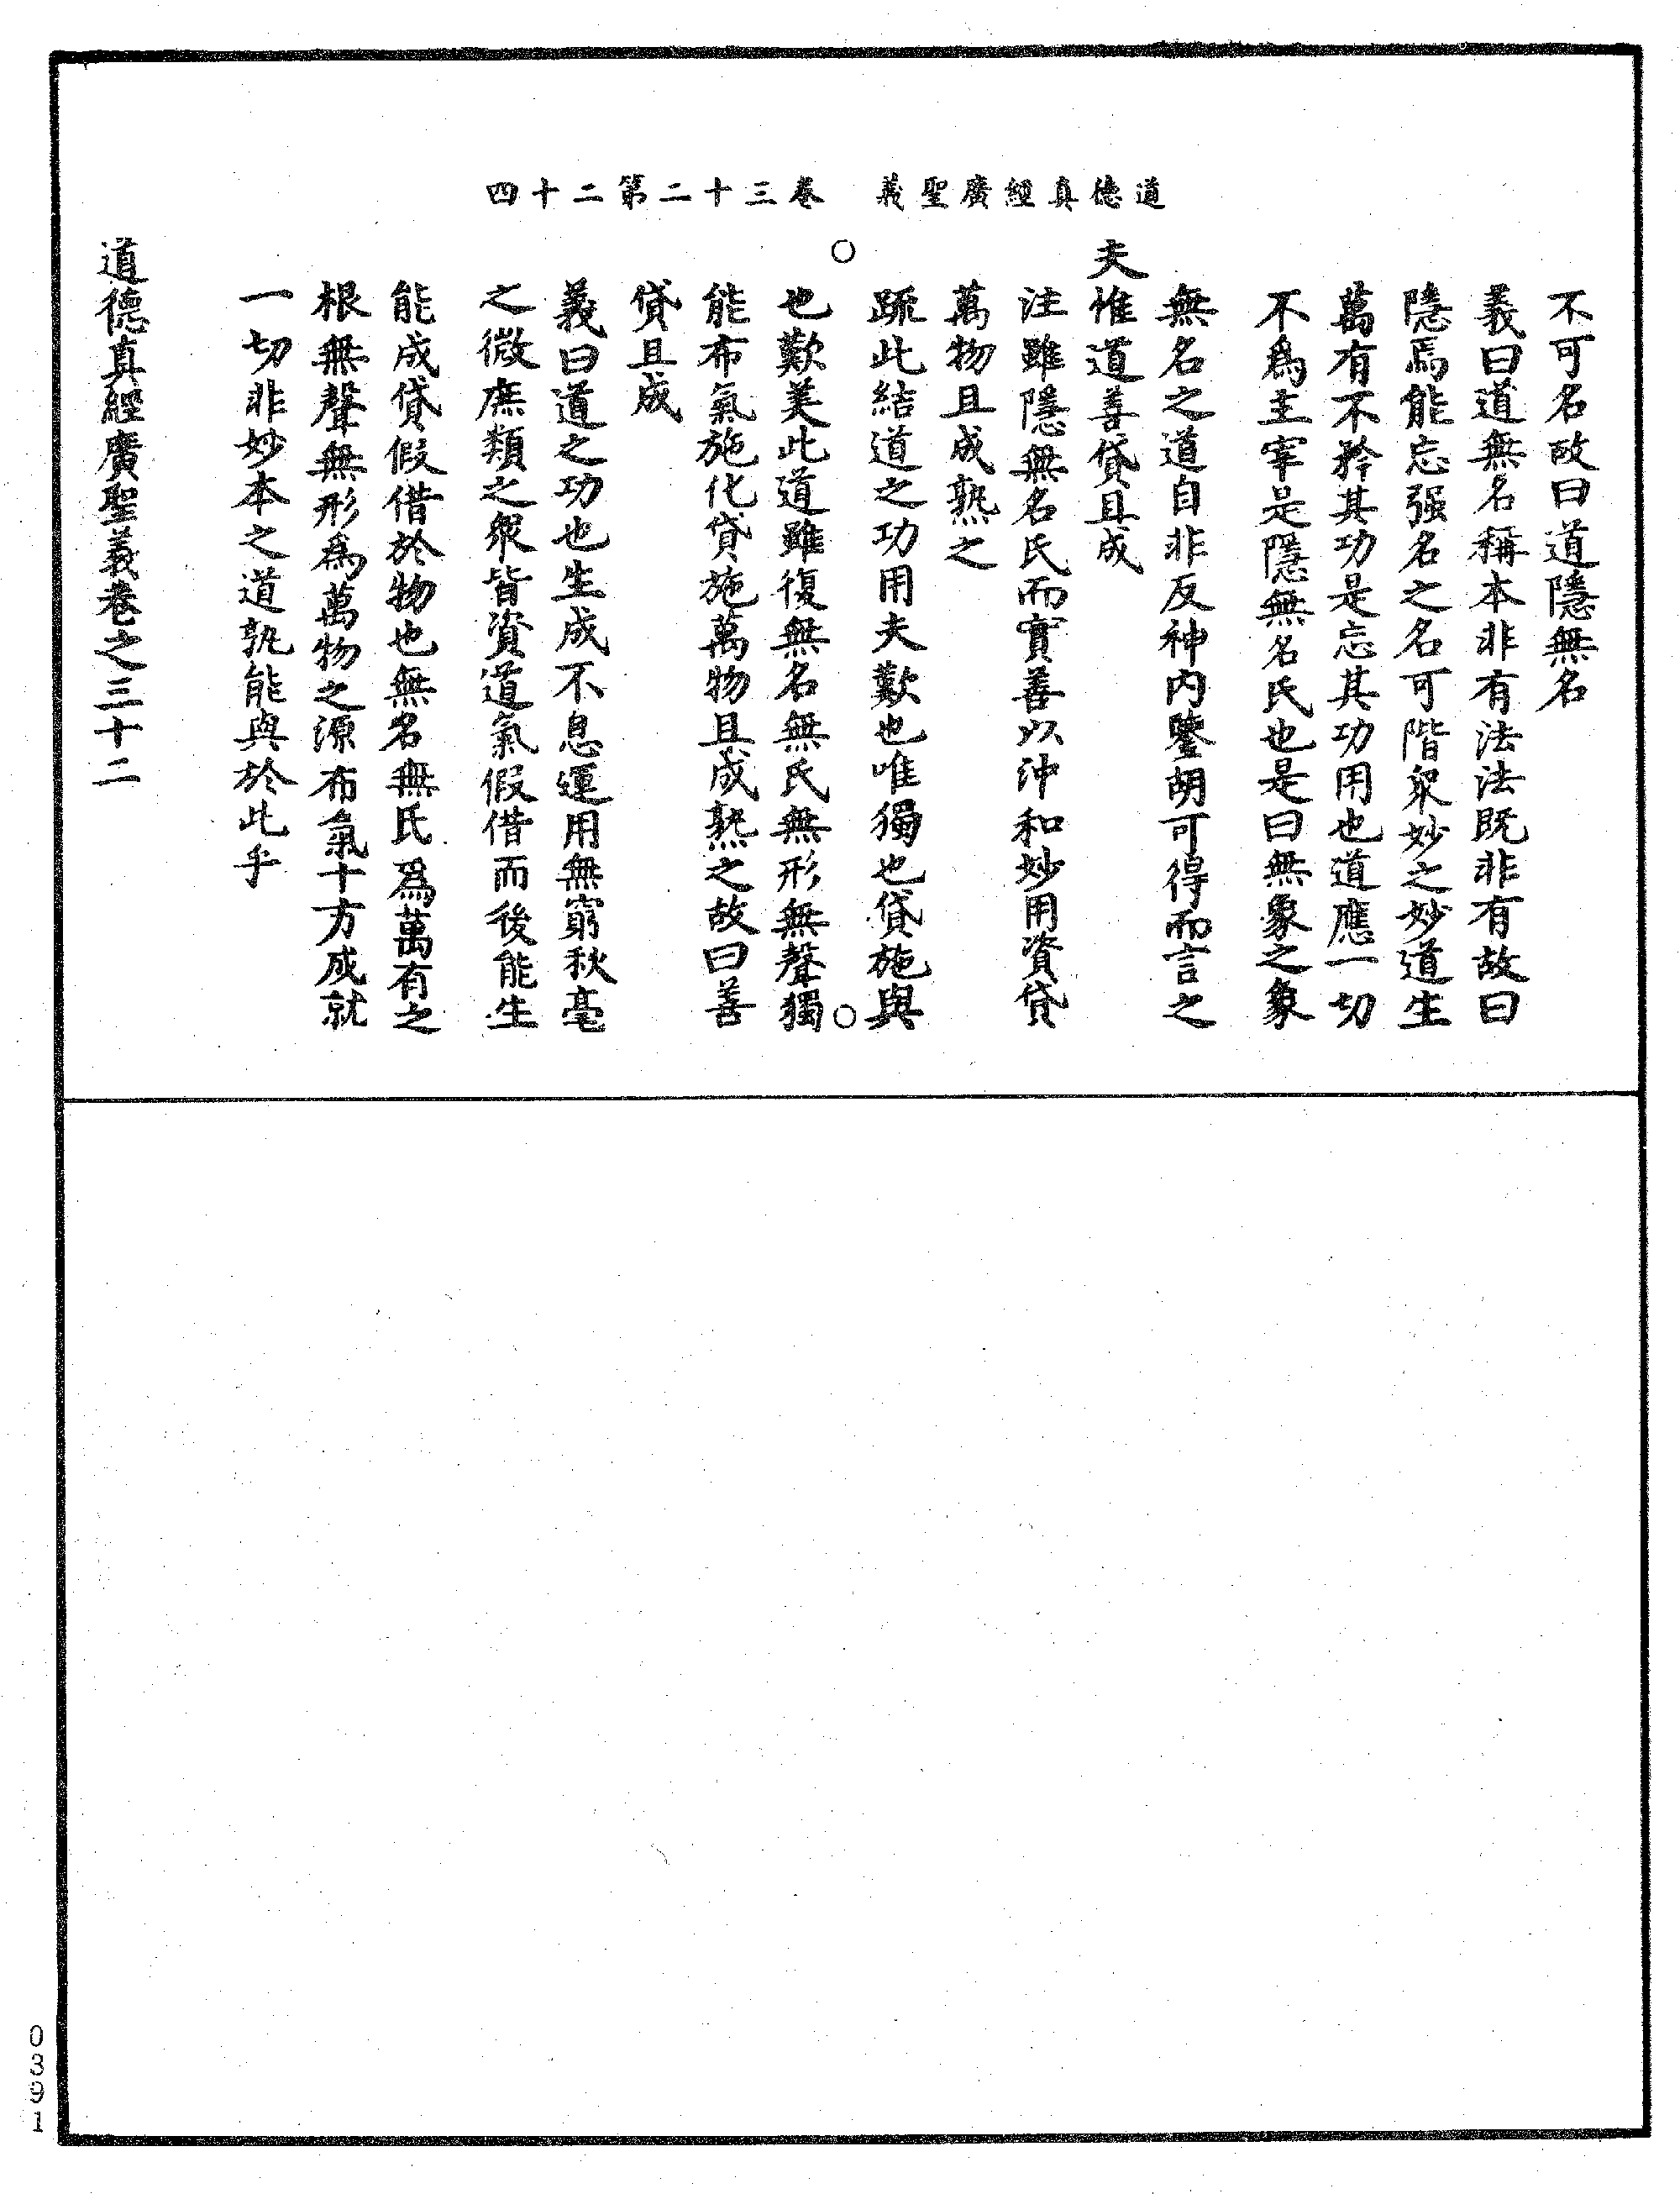 道德真經廣聖義　卷三十二第二十四
不可名故曰道隱無名
義曰道無名稱本非有法法既非有故曰
隱焉能忘强名之名可階衆妙之妙道生
萬有不矜其功是忘其功用也道應一切
不爲主宰是隱無名氏也是曰無象之象
無名之道自非反神内鑒胡可得而言之
夫惟道善貸且成
注雖隱無名氏而實善以沖和妙用資貸
萬物且成熟之
疏此結道之功用夫歎也唯獨也貸施與
也歎美此道雖復無名無氏無形無聲獨
能布氣施化貸施萬物且成熟之故曰善
貸且成
義曰道之功也生成不息運用無窮秋毫
之微庶類之衆皆資道氣假借而後能生
能成貸假借於物也無名無氏爲萬有之
根無聲無形爲萬物之源布氣十方成就
一切非妙本之道孰能與於此乎
道德真經廣聖義卷之三十二
0391